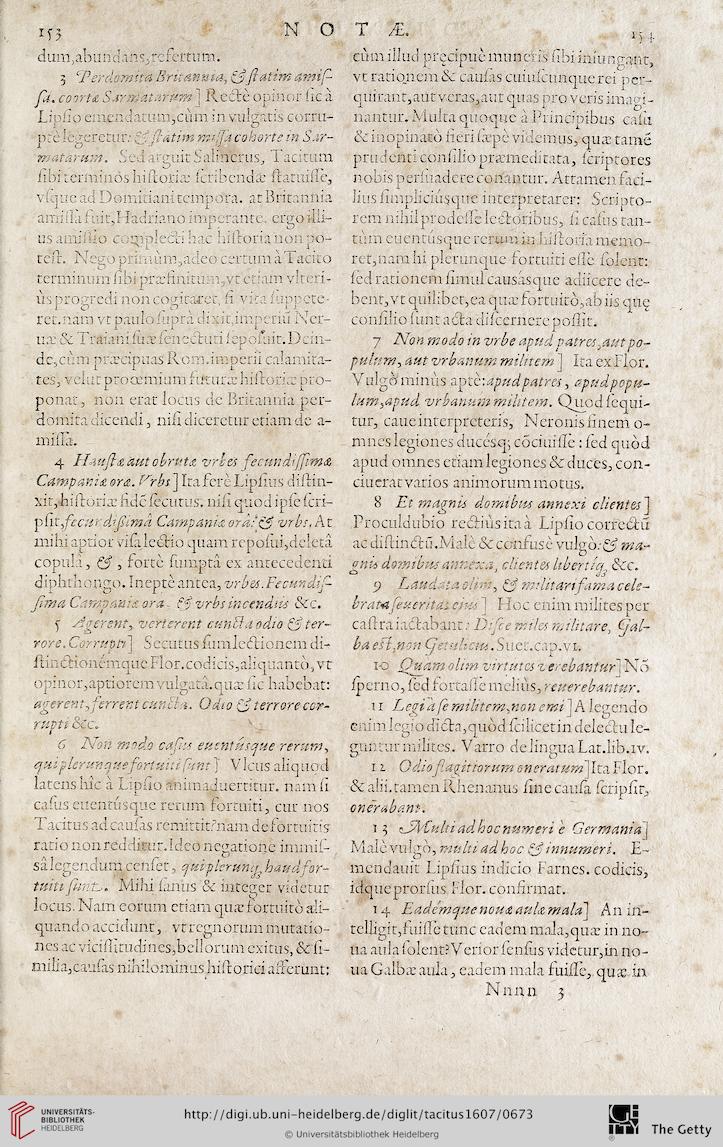 153
NOTÆ.
154
dum, abundans, refertum.
3 Perdomita Britannia, & statim amis-
sa. coortæ Sarmatarum] Rectè opinor sic à
Lipsio emendatum, cùm in vulgatis corru-
ptè legeretur: & statim missa cohorte in Sar-
matarum. Sed arguit Salinerus, Tacitum
sibi terminos historiæ scribendæ statuisse,
vsque ad Domitiani tempora. at Britannia
amissa fuit, Hadriano imperante. ergo illi-
us amissio complecti hac historia non po-
test. Nego primùm, adeo certum à Tacito
terminum sibi præfinitum, vt etiam vlteri-
ùs progredi non cogitaret, si vita suppete-
ret. nam vt paulo suprà dixit, imperiū Ner-
uæ & Traiani suæ senectuti seposuit. Dein-
de, cùm præcipuas Rom. imperii calamita-
tes, velut proœmium futuræ historiæ pro-
ponat, non erat locus de Britannia per-
domita dicendi, nisi diceretur etiam de a-
missa.
4 Haustæ aut obrutæ vrbes fecundissimæ
Campaniæ oræ. Vrbs] Ita ferè Lipsius distin-
xit, historiæ fidē secutus. nisi quod ipse scri-
psit, fecundißimâ Campaniæ orâ: & vrbs. At
mihi aptior visa lectio quam reposui, deletâ
copulâ, &, fortè sumptâ ex antecedenti
diphthongo. Ineptè antea, vrbes. Fecundis-
sima Campaniæ ora. & vrbs incendiis &c.
5 Agerent, verterent cuncta odio & ter-
rore. Corrupti] Secutus sum lectionem di-
stinctionémque Flor. codicis, aliquantò, vt
opinor, aptiorem vulgatâ. quæ sic habebat:
agerent, ferrent cuncta. Odio & terrore cor-
rupti &c.
6 Non modo casus euentúsque rerum,
qui plerunque fortuiti sunt] Vlcus aliquod
latens hîc à Lipsio animaduertitur. nam si
casus euentúsque rerum fortuiti, cur nos
Tacitus ad causas remittit? nam de fortuitis
ratio non redditur. Ideo negatione immis-
sâ legendum censet, qui plerunq, haud for-
tuiti sunt. Mihi sanus & integer videtur
locus. Nam eorum etiam quæ fortuitò ali-
quando accidunt, vt regnorum mutatio-
nes ac vicissitudines, bellorum exitus, & si-
milia, causas nihilominus historici afferunt:
cùm illud pręcipuè muneris sibi iniungant,
vt rationem & causas cuiuscunque rei per-
quirant, aut veras, aut quas pro veris imagi-
nantur. Multa quoque à Principibus casu
& inopinatò fieri sæpè videmus, quæ tamē
prudenti consilio præmeditata, scriptores
nobis persuadere conantur. Attamen faci-
lius simpliciúsque interpretarer: Scripto-
rem nihil prodesse lectoribus, si casus tan-
tùm euentúsque rerum in historia memo-
ret, nam hi plerunque fortuiti esse solent:
sed rationem simul causásque adiicere de-
bent, vt quilibet, ea quæ fortuitò, ab iis quę
consilio sunt acta discernere possit.
7 Non modo in vrbe apud patres, aut po-
pulum, aut vrbanum militem] Ita ex Flor.
Vulgò minùs aptè: apud patres, apud popu-
lum, apud vrbanum militem. Quod sequi-
tur, caue interpreteris, Neronis finem o-
mnes legiones ducésq; cōciuisse: sed quòd
apud omnes etiam legiones & duces, con-
ciuerat varios animorum motus.
8 Et magnis domibus annexi clientes]
Proculdubio rectiùs ita à Lipsio correctū
ac distinctū. Malè & confusè vulgò: & ma-
gnis domibus annexa, clientes libertíq, &c.
9 Laudata olim, & militari fama cele-
brata seueritas eius] Hoc enim milites per
castra iactabant: Disce miles militare, Gal-
ba est, non Getulicus. Suet. cap. VI.
10 Quam olim virtutes verebantur] Nō
sperno, sed fortasse meliùs, reuerebantur.
11 Legi à se militem, non emi] A legendo
enim legio dicta, quòd scilicet in delectu le-
guntur milites. Varro de lingua Lat. lib. IV.
12 Odio flagitiorum oneratum] Ita Flor.
& alii. tamen Rhenanus sine causa scripsit,
onerabant.
13 Multi ad hoc numeri è Germania]
Malè vulgò, multi ad hoc & innumeri. E-
mendauit Lipsius indicio Farnes. codicis,
idque prorsus Flor. confirmat.
14 Eadémque nouæ aulæ mala] An in-
telligit, fuisse tunc eadem mala, quæ in no-
ua aula solent? Verior sensus videtur, in no-
ua Galbæ aula, eadem mala fuisse, quæ in
Nnnn 3
UNIVERSITÄTS-
BIBLIOTHEK
HEIDELBERG
http://digi.ub.uni-heidelberg.de/diglit/tacitus1607/0673
© Universitätsbibliothek Heidelberg
The Getty